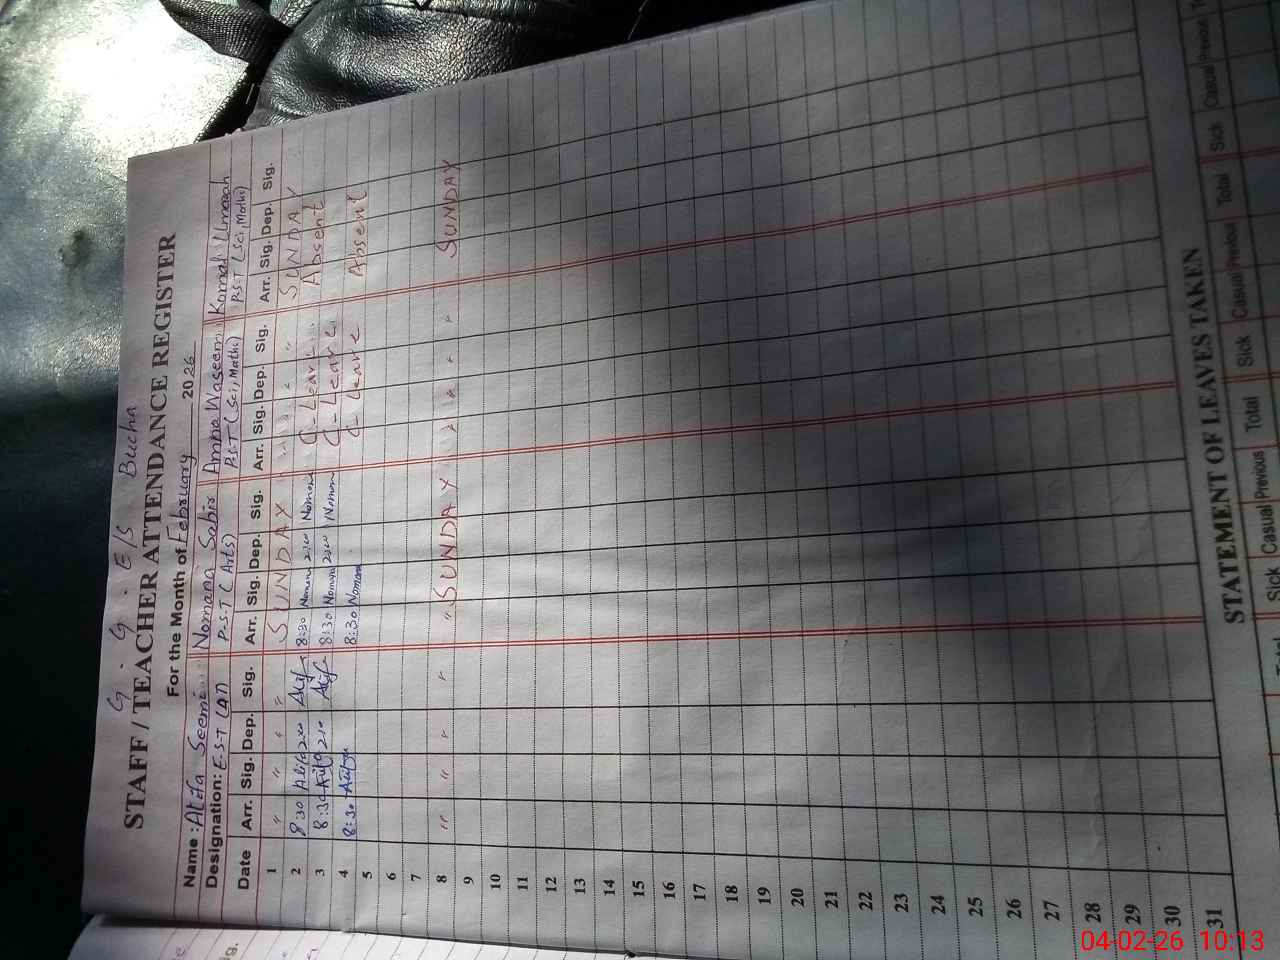 G. G. E/S Bucha
STAFF / TEACHER ATTENDANCE REGISTER
For the Month of February 2026
Name : Atifa Seemi Nomana Sabir Amna Waseem Komal Umarah
Designation: E.S.T (AT) P.S.T (Arts) P.S.T (Sci, Math) P.S.T (Sci, Math)
Date Arr. Sig. Dep. Sig. Arr. Sig. Dep. Sig. Arr. Sig. Dep. Sig. Arr. Sig. Dep. Sig.
1 " " " " SUNDAY " " SUNDAY
2 8:30 Atifa 2:00 Atif 8:30 Noman 2:00 Noman C-Leave Absent
3 8:30 Atif 2:10 Atif 8:30 Noman 2:00 Noman C-Leave
4 8:30 8:30 Noman C-Leave Absent
5
6
7
8 " " " " " SUNDAY " " " " SUNDAY
9
10
11
12
13
14
15
16
17
18
19
20
21
22
23
24
25
26
27
28
29
30
31
STATEMENT OF LEAVES TAKEN
Sick Casual Previous Total Sick Casual Previous Total Sick Casual Previous
04-02-26 10:13